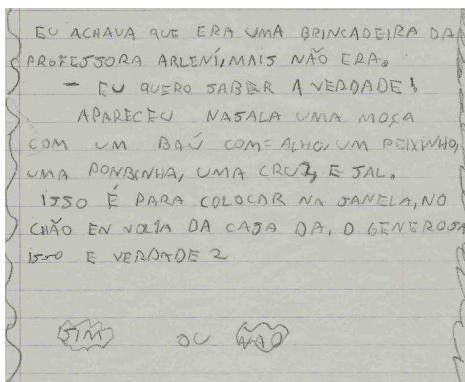 EU ACHAVA QUE ERA UMA BRINCADEIRA DA
PROFESSORA ARLENÍ, MAIS NÃO ERA.
- EU QUERO SABER A VERDADE!
APARECEU NASALA UMA MOÇA
COM UM BAÚ COM= ALHO, UM PEIXINHO,
UMA PONBINHA, UMA CRUZ, E SAL.
ISSO É PARA COLOCAR NA JANELA, NO
CHÃO EN VOLTA DA CASA DA. D GENEROSA
ISSO E VERDADE ?
SIM OU NÃO